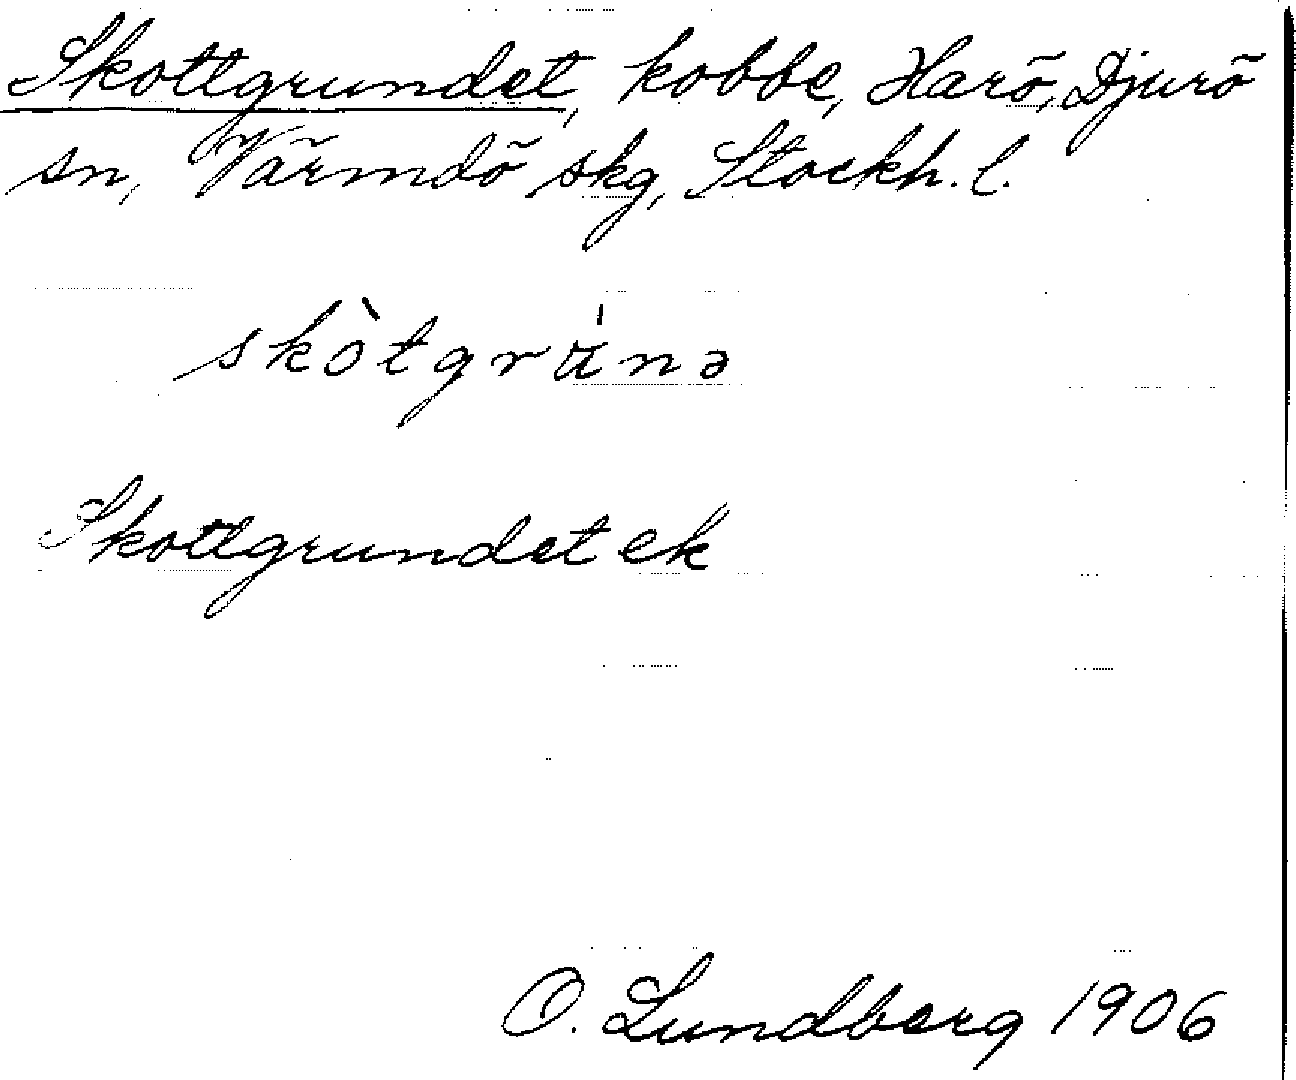 Skottgrundet, kobbe, Harö, Djurö
sn, Värmdö skg, Stockh. l.
skòtgrùnə
Skottgrundet ek
O. Lundberg 1906